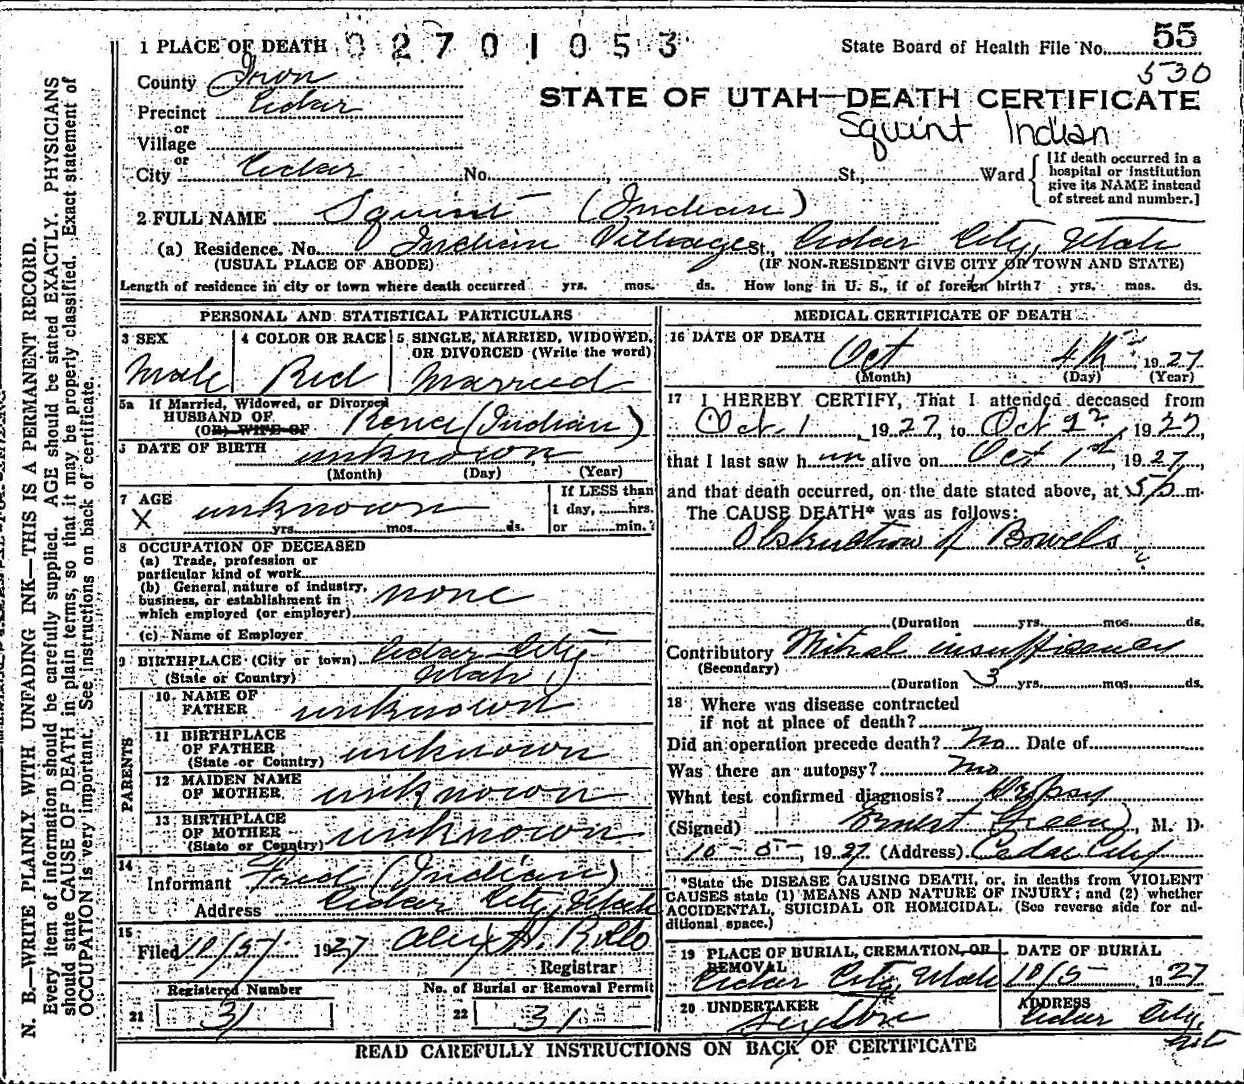 1 PLACE OF DEATH 02701053 State Board of Health File No. 55
530
County Iron
STATE OF UTAH—DEATH CERTIFICATE
Precinct Cedar
Squint Indian
or
Village
or
City Cedar No. , St., Ward [If death occurred in a hospital or institution give its NAME instead of street and number.]
2 FULL NAME Squint (Indian)
(a) Residence. No. Indian Village St., Cedar City, Utah
(USUAL PLACE OF ABODE) (IF NON-RESIDENT GIVE CITY OR TOWN AND STATE)
Length of residence in city or town where death occurred yrs. mos. ds. How long in U. S., if of foreign birth? yrs. mos. ds.
PERSONAL AND STATISTICAL PARTICULARS
3 SEX
Male
4 COLOR OR RACE
Red
5 SINGLE, MARRIED, WIDOWED,
OR DIVORCED (Write the word)
Married
5a If Married, Widowed, or Divorced
HUSBAND OF
(OR) WIFE OF
(Indian)
DATE OF BIRTH unknown
(Month) (Day) (Year)
7 AGE
X
unknown
yrs. mos. ds.
If LESS than
1 day, hrs.
or min.?
8 OCCUPATION OF DECEASED
(a) Trade, profession or
particular kind of work
(b) General nature of industry,
business, or establishment in
which employed (or employer)
none
(c) Name of Employer
9 BIRTHPLACE (City or town) Cedar City
(State or Country) Utah
PARENTS
10 NAME OF
FATHER unknown
11 BIRTHPLACE
OF FATHER unknown
(State or Country)
12 MAIDEN NAME
OF MOTHER unknown
13 BIRTHPLACE
OF MOTHER unknown
(State or Country)
14
Informant Fred (Indian)
Address Cedar City, Utah
15
Filed 10/5/ 1927 Alex H. Rollo
Registrar
Registered Number
21 31
No. of Burial or Removal Permit
22 31
MEDICAL CERTIFICATE OF DEATH
16 DATE OF DEATH
Oct 4th 1927
(Month) (Day) (Year)
17 I HEREBY CERTIFY, That I attended deceased from
Oct. 1, 1927, to Oct 1927,
that I last saw him alive on Oct 1st, 1927,
and that death occurred, on the date stated above, at m.
The CAUSE DEATH* was as follows:
Obstruction of Bowels
?
(Duration yrs. mos. ds.
Contributory Mitral insufficiency
(Secondary)
(Duration 3 yrs. mos. ds.
18 Where was disease contracted
if not at place of death?
Did an operation precede death? No Date of
Was there an autopsy? No
What test confirmed diagnosis?
(Signed) Ernest Green, M. D.
10-5-, 1927 (Address) Cedar City
*State the DISEASE CAUSING DEATH, or, in deaths from VIOLENT
CAUSES state (1) MEANS AND NATURE OF INJURY; and (2) whether
ACCIDENTAL, SUICIDAL OR HOMICIDAL. (See reverse side for ad-
ditional space.)
19 PLACE OF BURIAL, CREMATION, OR
REMOVAL
Cedar City, Utah
DATE OF BURIAL
10/5 1927
20 UNDERTAKER
ADDRESS
Cedar City,
READ CAREFULLY INSTRUCTIONS ON BACK OF CERTIFICATE
N. B.—WRITE PLAINLY WITH UNFADING INK—THIS IS A PERMANENT RECORD.
Every item of information should be carefully supplied. AGE should be stated EXACTLY. PHYSICIANS
should state CAUSE OF DEATH in plain terms, so that it may be properly classified. Exact statement of
OCCUPATION is very important. See instructions on back of certificate.